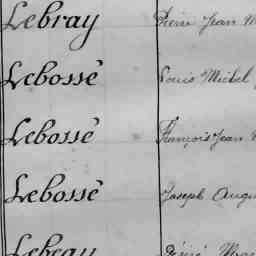 Lebray Pierre Jean M
Lebossé Louis Michel
Lebossé François Jean
Lebossé Joseph Augu
Lebray René Mar